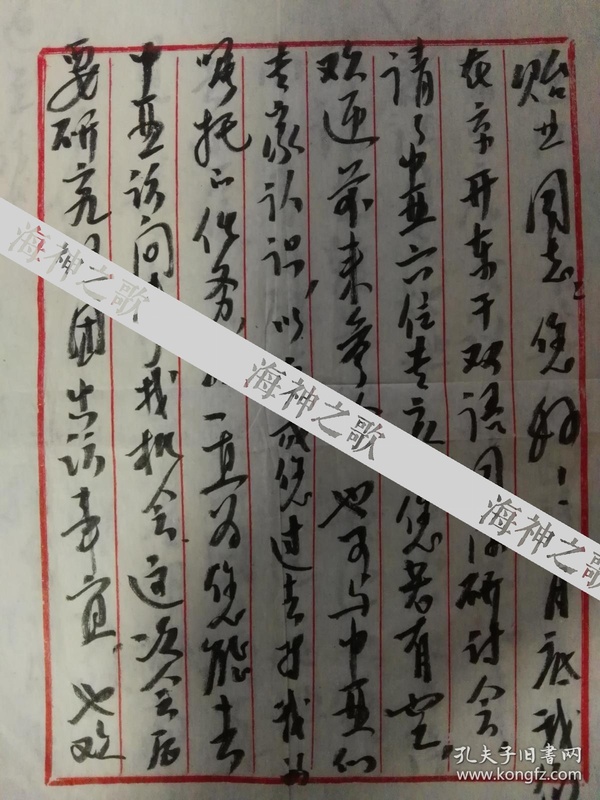 贻业同志：您好！二月底我们
在京开东干双语国际研讨会，
请了中亚六位专家，您若有空，
欢迎前来参加，也可与中亚们
专家认识，以完成您过去对我的
嘱托与任务，我一直为您能去
中亚访问寻找机会，这次会后
要研究组团出访事宜，也欢
海神之歌
海神之歌
海神之歌
孔夫子旧书网
www.kongfz.com